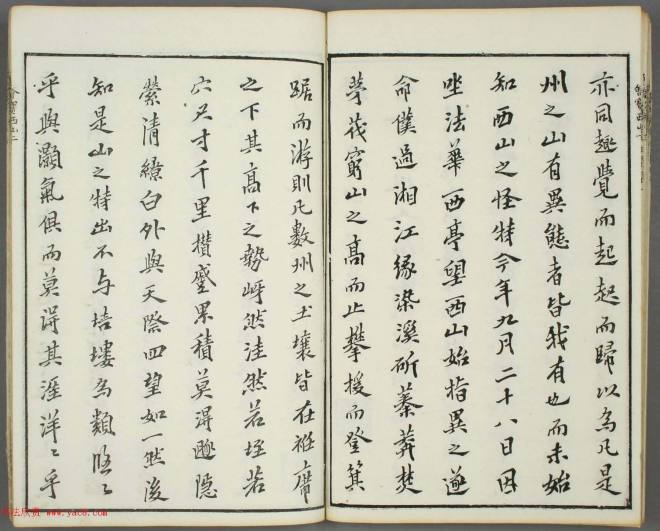 亦同趣覺而起起而歸以為凡是
州之山有異態者皆我有也而未始
知西山之怪特今年九月二十八日因
坐法華西亭望西山始指異之遂
命僕過湘江緣染溪斫蓁莽焚
茅茷窮山之高而止攀援而登箕
踞而遊則凡數州之土壤皆在衽席
之下其高下之勢岈然洼然若垤若
穴尺寸千里攢蹙累積莫得遯隱
縈清繚白外與天際四望如一然後
知是山之特出不与培塿為類悠〻
乎與灝氣俱而莫得其涯洋〻乎
www.yac8.com